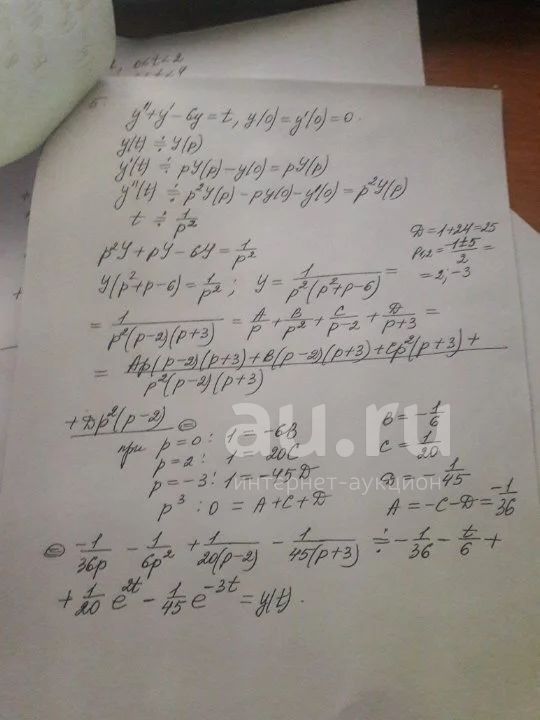 2, 0<t<2
5
y''+y'−6y=t, y(0)=y'(0)=0.
y(t) ≑ Y(p)
y'(t) ≑ pY(p)−y(0)=pY(p)
y''(t) ≑ p²Y(p)−py(0)−y'(0)=p²Y(p)
t ≑ 1/p²
p²Y+pY−6Y=1/p²
D=1+24=25
p1,2=(−1±5)/2=
=2;−3
Y(p²+p−6)=1/p²; Y=1/(p²(p²+p−6))=
=1/(p²(p−2)(p+3))=A/p+B/p²+C/(p−2)+D/(p+3)=
=(Ap(p−2)(p+3)+B(p−2)(p+3)+Cp²(p+3)+
p²(p−2)(p+3)
+Dp²(p−2) ⊜
при p=0: 1=−6B B=−1/6
p=2: 1=20C C=1/20
p=−3: 1=−45D D=−1/45
p³: 0=A+C+D A=−C−D=−1/36
⊜ −1/36p −1/6p² +1/20(p−2) −1/45(p+3) ≑ −1/36−t/6+
+1/20 e^2t −1/45 e^−3t =y(t).
au.ru
интернет-аукцион